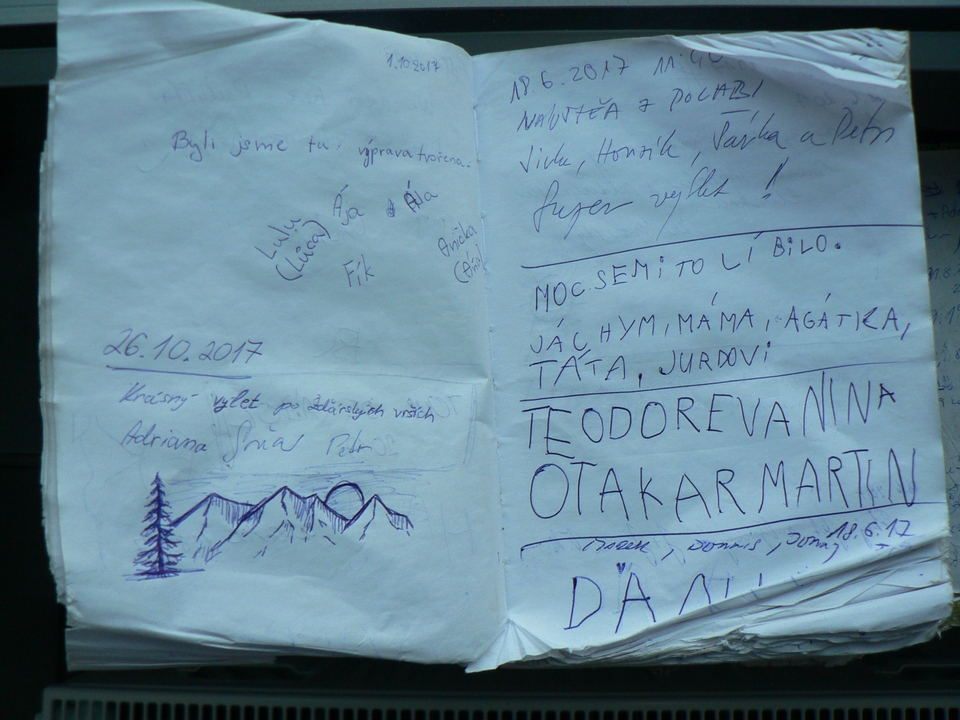 1.10.2017
Byli jsme tu. výprava tvořena.
Ája Ála
Lulu
(Lůca)
Anička
Fík
26.10.2017
Krásný výlet po žďárských vrších
Adriana Petr
18.6.2017 11:40
Z POLABÍ
Honzík, Šárka a Petr
Super výlet!
MOC SEMI TO LÍBILO.
JÁCHYM, MÁMA, AGÁTKA,
TÁTA, JURDOVI
TEODOR EVA NINA
OTAKAR MARTIN
18.6.17